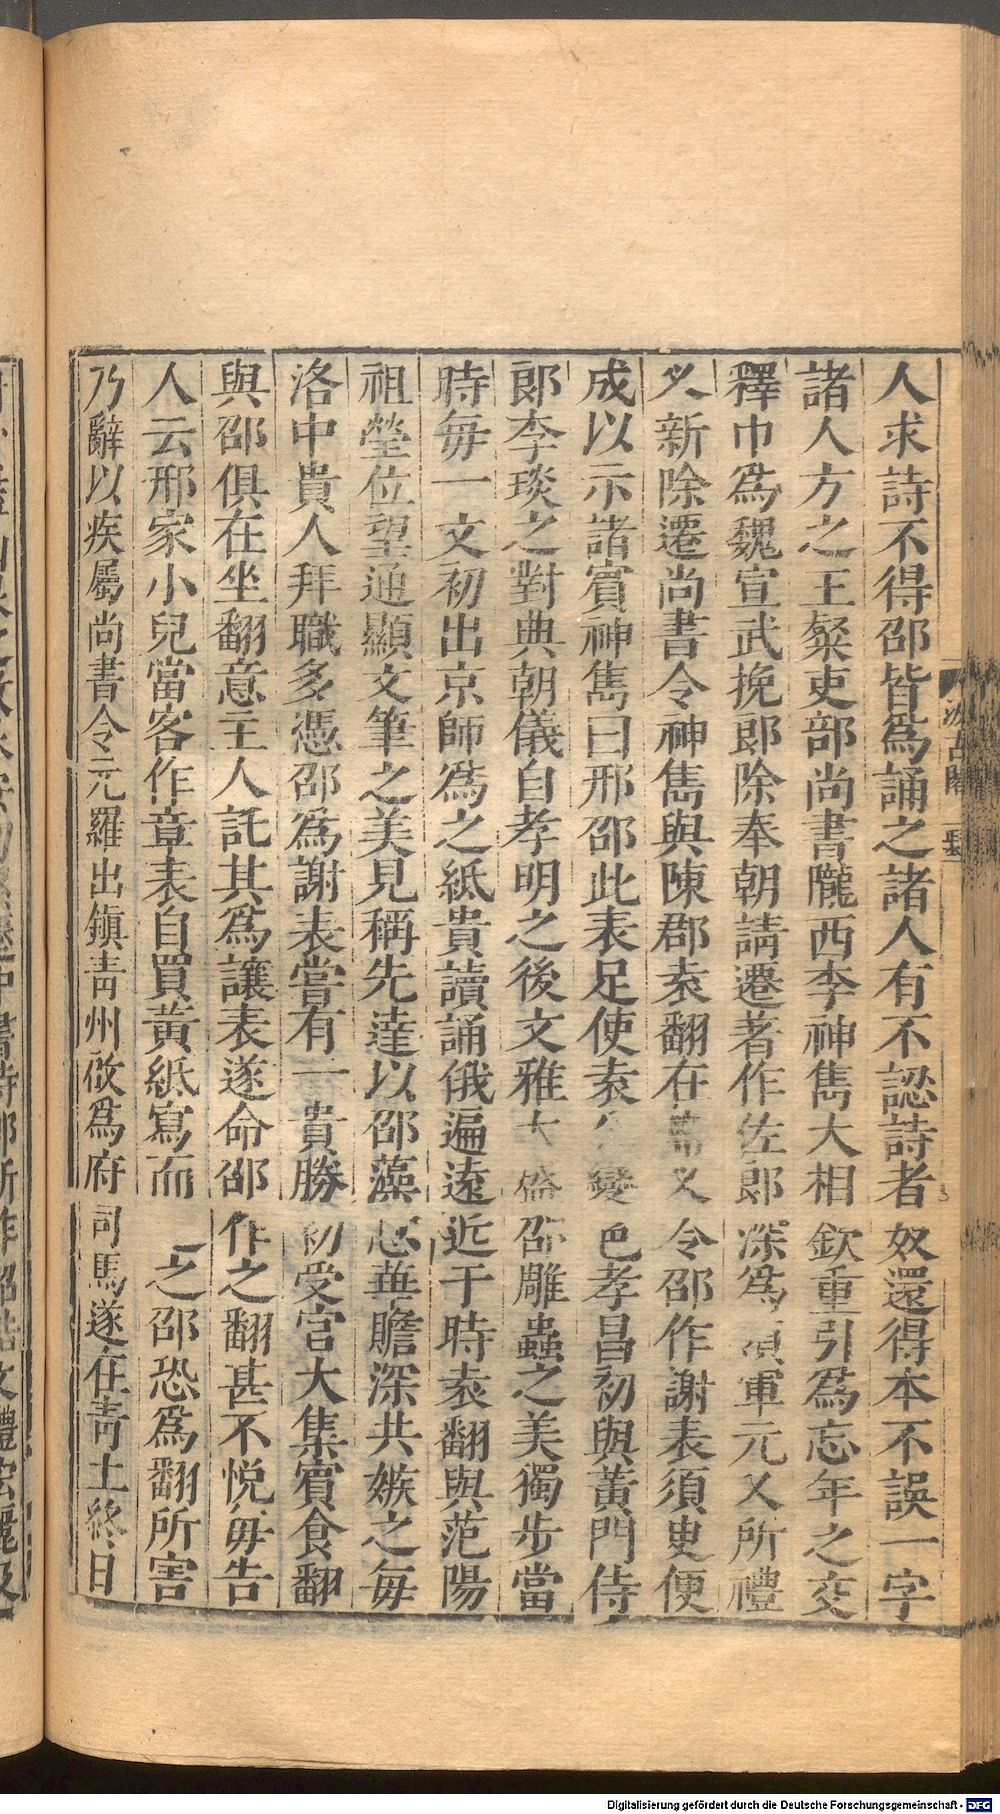 人求詩不得邵皆爲誦之諸人有不認詩者奴還得本不誤一字
諸人方之王粲吏部尚書隴西李神雋大相欽重引爲忘年之交
釋巾爲魏宣武挽郎除奉朝請遷著作佐郎深爲領軍元乂所禮
乂新除遷尚書令神雋與陳郡袁翻在席乂令邵作謝表須臾便
成以示諸賓神雋曰邢邵此表足使袁公變色孝昌初與黃門侍
郎李琰之對典朝儀自孝明之後文雅大盛邵雕蟲之美獨步當
時毎一文初出京師爲之紙貴讀誦俄遍遠近于時袁翻與范陽
祖瑩位望通顯文筆之美見稱先達以邵藻思華贍深共嫉之毎
洛中貴人拜職多憑邵爲謝表嘗有一貴勝初受官大集賓食翻
與邵俱在坐翻意主人託其爲讓表遂命邵作之翻甚不悅毎告
人云邢家小兒當客作章表自買黃紙寫而之邵恐爲翻所害
乃辭以疾屬尚書令元羅出鎮青州啟爲府司馬遂在青土終日
汲古閣
Digitalisierung gefördert durch die Deutsche Forschungsgemeinschaft - DFG